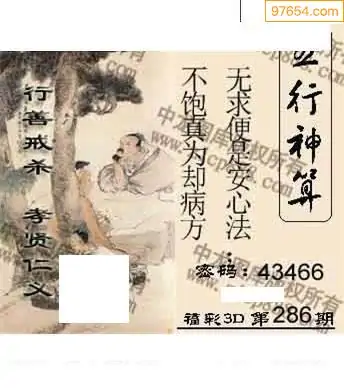 97654.com
行神算
无求便是安心法；
不饱真为却病方
行善戒杀 孝贤仁义
密码：43466
福彩3D 第286期